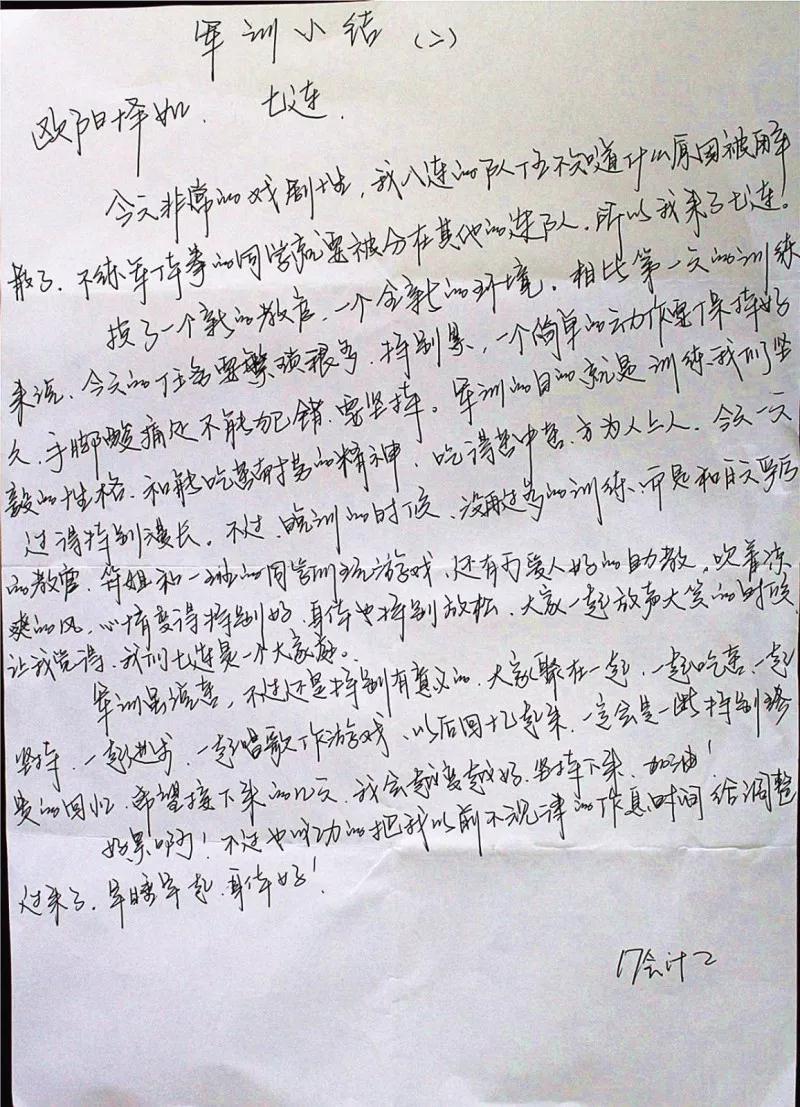 军训小结（二）
欧阳梓如. 七连.
今天非常的戏剧性，我八连的队伍不知道什么原因被解
散了.不练军体拳的同学就要被分在其他的连队，所以我来了七连。
换了一个新的教官，一个全新的环境。相比第一天的训练
来说、今天的任务要繁琐很多、特别累，一个简单的动作要保持好
久、手脚酸痛处不能自己错、要坚持。军训的目的就是训练我们坚
毅的性格、和能吃苦耐劳的精神，吃得苦中苦、方为人上人、今天一天
过得特别漫长。不过，晚训的时候、没有过多的训练、而是和白天严厉
的教官、学姐和一班的同学们玩游戏、还有可爱人好的助教，吹着凉
爽的风，心情变得特别好、身体也特别放松，大家一起放声大笑的时候
让我觉得、我们七连是一个大家庭。
军训虽说苦，不过还是特别有意义的、大家聚在一起，一起吃苦、一起
坚持、一起进步、一起唱歌作游戏、以后回忆起来、一定会是一些特别珍
贵的回忆、希望接下来的几天、我会越变越好、坚持下来、加油！
好累啊！不过也成功的把我以前不规律的作息时间给调整
过来了、早睡早起、身体好！
17会计2